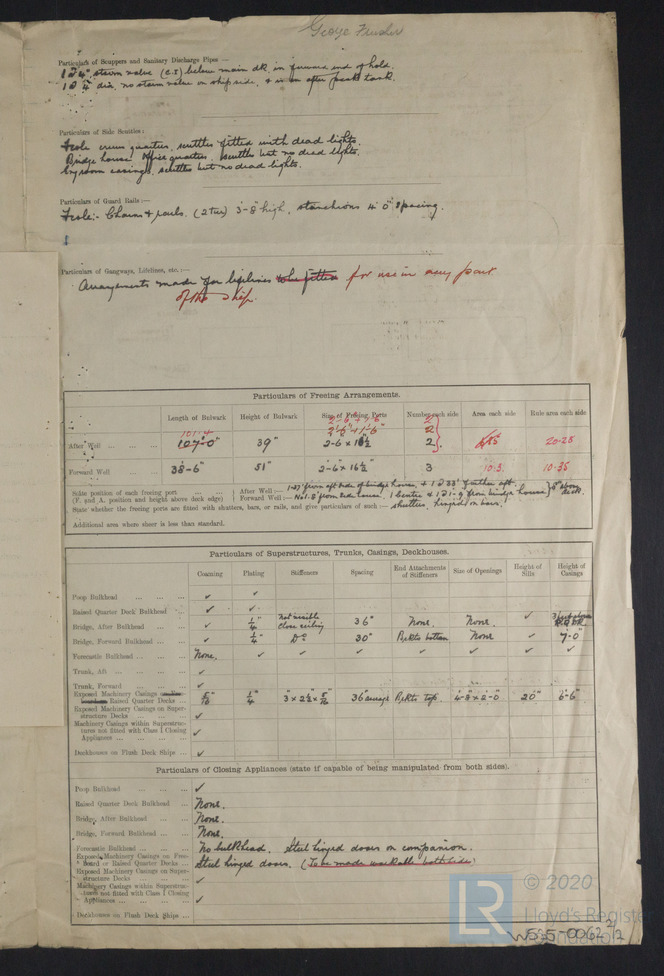 George Fleisher
Particulars of Scuppers and Sanitary Discharge Pipes —
storm valve (C.I) below main dk. in forward end of hold.
dia. no storm valve on ship side, & is on after peak tank.
Particulars of Side Scuttles:
Fcsle crews quarters, scuttles fitted with dead lights.
Bridge house officers quarters, scuttles but no dead lights.
Eng room casings, scuttles but no dead lights.
Particulars of Guard Rails:—
Fcsle:- Chains & rails. (2 tier) 3'-8" high, stanchions 4'0" spacing.
Particulars of Gangways, Lifelines, etc.:—
Arrangements made for lifelines to be fitted for use in any part
of the ship.
Particulars of Freeing Arrangements.
Length of Bulwark Height of Bulwark Size of Freeing Ports Number each side Area each side Rule area each side
101'-4 2
After Well 107'-0" 39" 2-6 x 16½ 2 20.28
Forward Well 38'-6" 51" 2'-6" x 16½" 3 10.3. 10.35
State position of each freeing port
(F. and A. position and height above deck edge)
After Well:— 1-27' from aft side of bridge house, & 1 @ 33' further aft.
Forward Well:— No 1. 8' from bridge house. 1 centre & 1 @ 1-9 from bridge house } 8" above deck.
State whether the freeing ports are fitted with shutters, bars, or rails, and give particulars of such:— shutters, hinged on bars.
Additional area where sheer is less than standard.
Particulars of Superstructures, Trunks, Casings, Deckhouses.
Coaming Plating Stiffeners Spacing End Attachments of Stiffeners Size of Openings Height of Sills Height of Casings
Poop Bulkhead ✓ ✓
Raised Quarter Deck Bulkhead ✓ ✓
Bridge, After Bulkhead ✓ ¼" Not visible close ceiling 36" None. None. ✓
Bridge, Forward Bulkhead ✓ ¼" Do 30" Brkts bottom None ✓ 7'-0"
Forecastle Bulkhead None. ✓ ✓ ✓ ✓ ✓ ✓ ✓
Trunk, Aft ✓
Trunk, Forward ✓
Exposed Machinery Casings on Raised Quarter Decks ¼" 3" x 2½ x 5/16 36" average Brkts top. 4'-8" x 2'-0" 20" 6'-6"
Exposed Machinery Casings on Superstructure Decks ✓
Machinery Casings within Superstructures not fitted with Class I Closing Appliances ✓
Deckhouses on Flush Deck Ships ✓
Particulars of Closing Appliances (state if capable of being manipulated from both sides).
Poop Bulkhead ✓
Raised Quarter Deck Bulkhead None.
Bridge, After Bulkhead None.
Bridge, Forward Bulkhead None.
Forecastle Bulkhead No bulkhead. Steel hinged doors on companion.
Exposed Machinery Casings on Freeboard or Raised Quarter Decks Steel hinged doors. (To be made workable both sides)
Exposed Machinery Casings on Superstructure Decks ✓
Machinery Casings within Superstructures not fitted with Class I Closing Appliances ✓
Deckhouses on Flush Deck Ships
LR
© 2020
Lloyd's Register
Foundation
WS35-0062 2/2